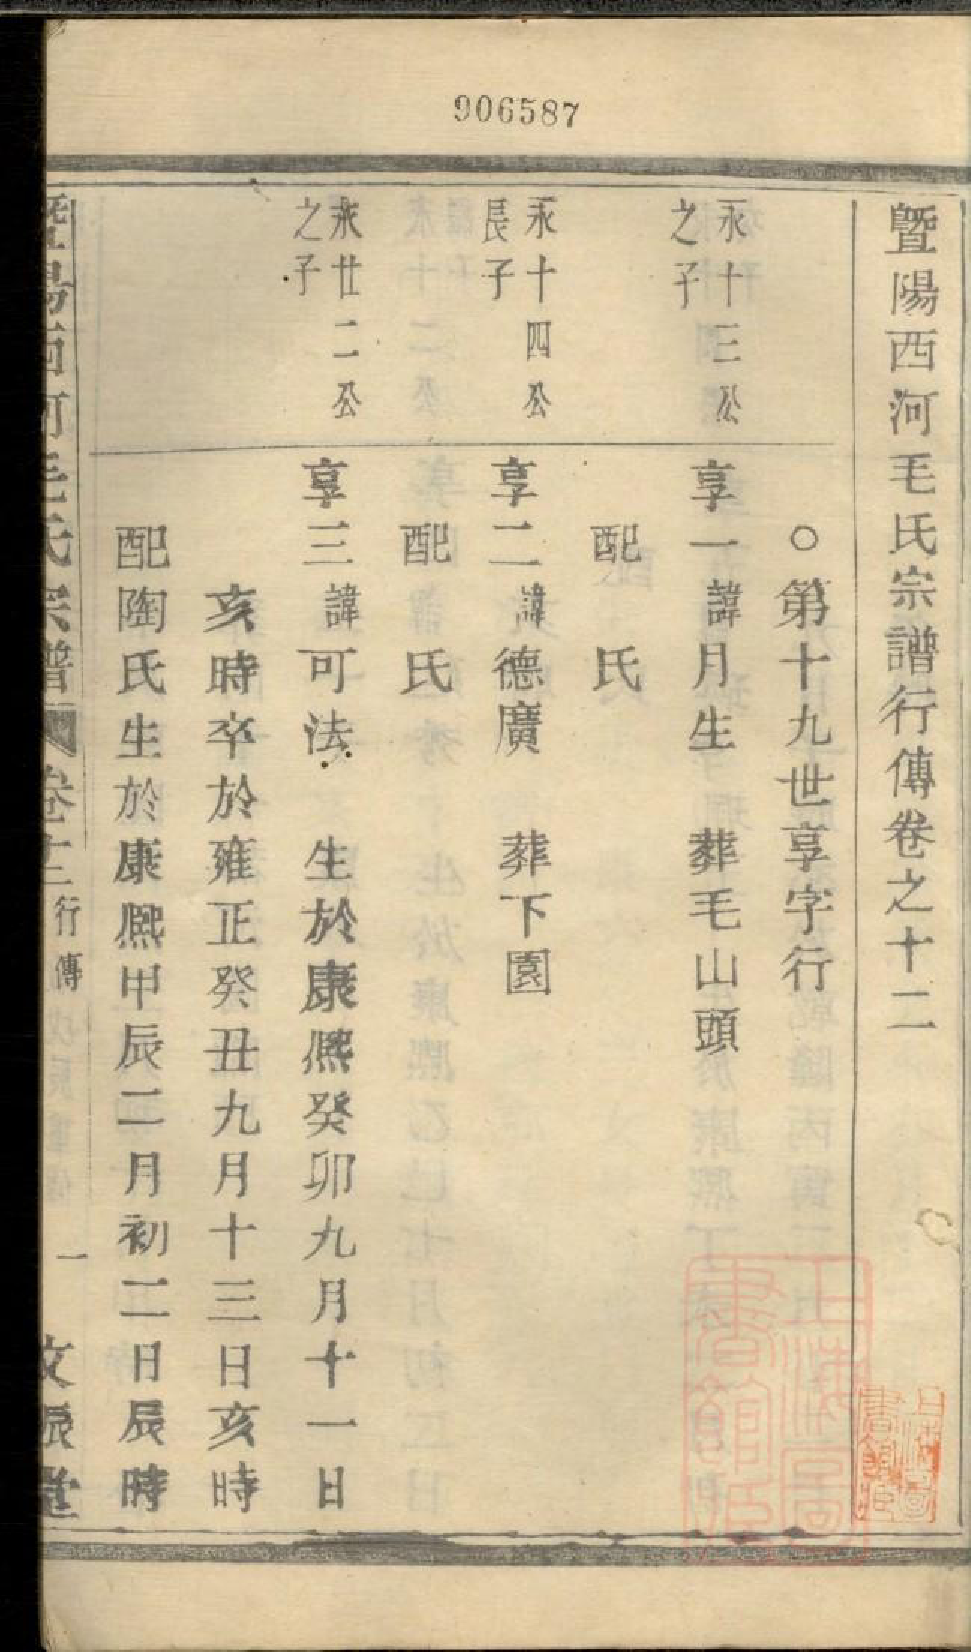 906587
暨陽西河毛氏宗譜行傳卷之十二
○第十九世享字行
永十三公
之子
享一諱月生 葬毛山頭
配 氏
永十四公
長子
享二諱德廣 葬下園
配 氏
永廿二公
之子
享三諱可法 生於康熈癸卯九月十一日
亥時卒於雍正癸丑九月十三日亥時
配陶氏生於康熈甲辰二月初二日辰時
暨陽西河毛氏宗譜 卷十二 行傳 一